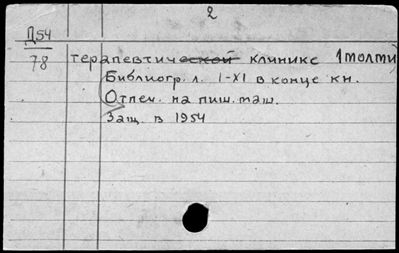 2
Д54
78 терапевтической клинике 1 МОЛМИ
Библиогр. л. I-XI в конце кн.
Отпеч. на пиш. маш.
Защ. в 1954